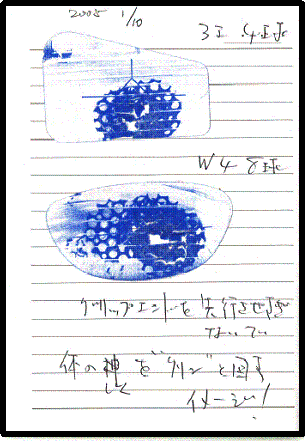 2005 1/10
3I 4球
W4 8球
グリップエンドを先行させすぎ
ない
体の神
しく
を"クリン"と回す
イメージ!